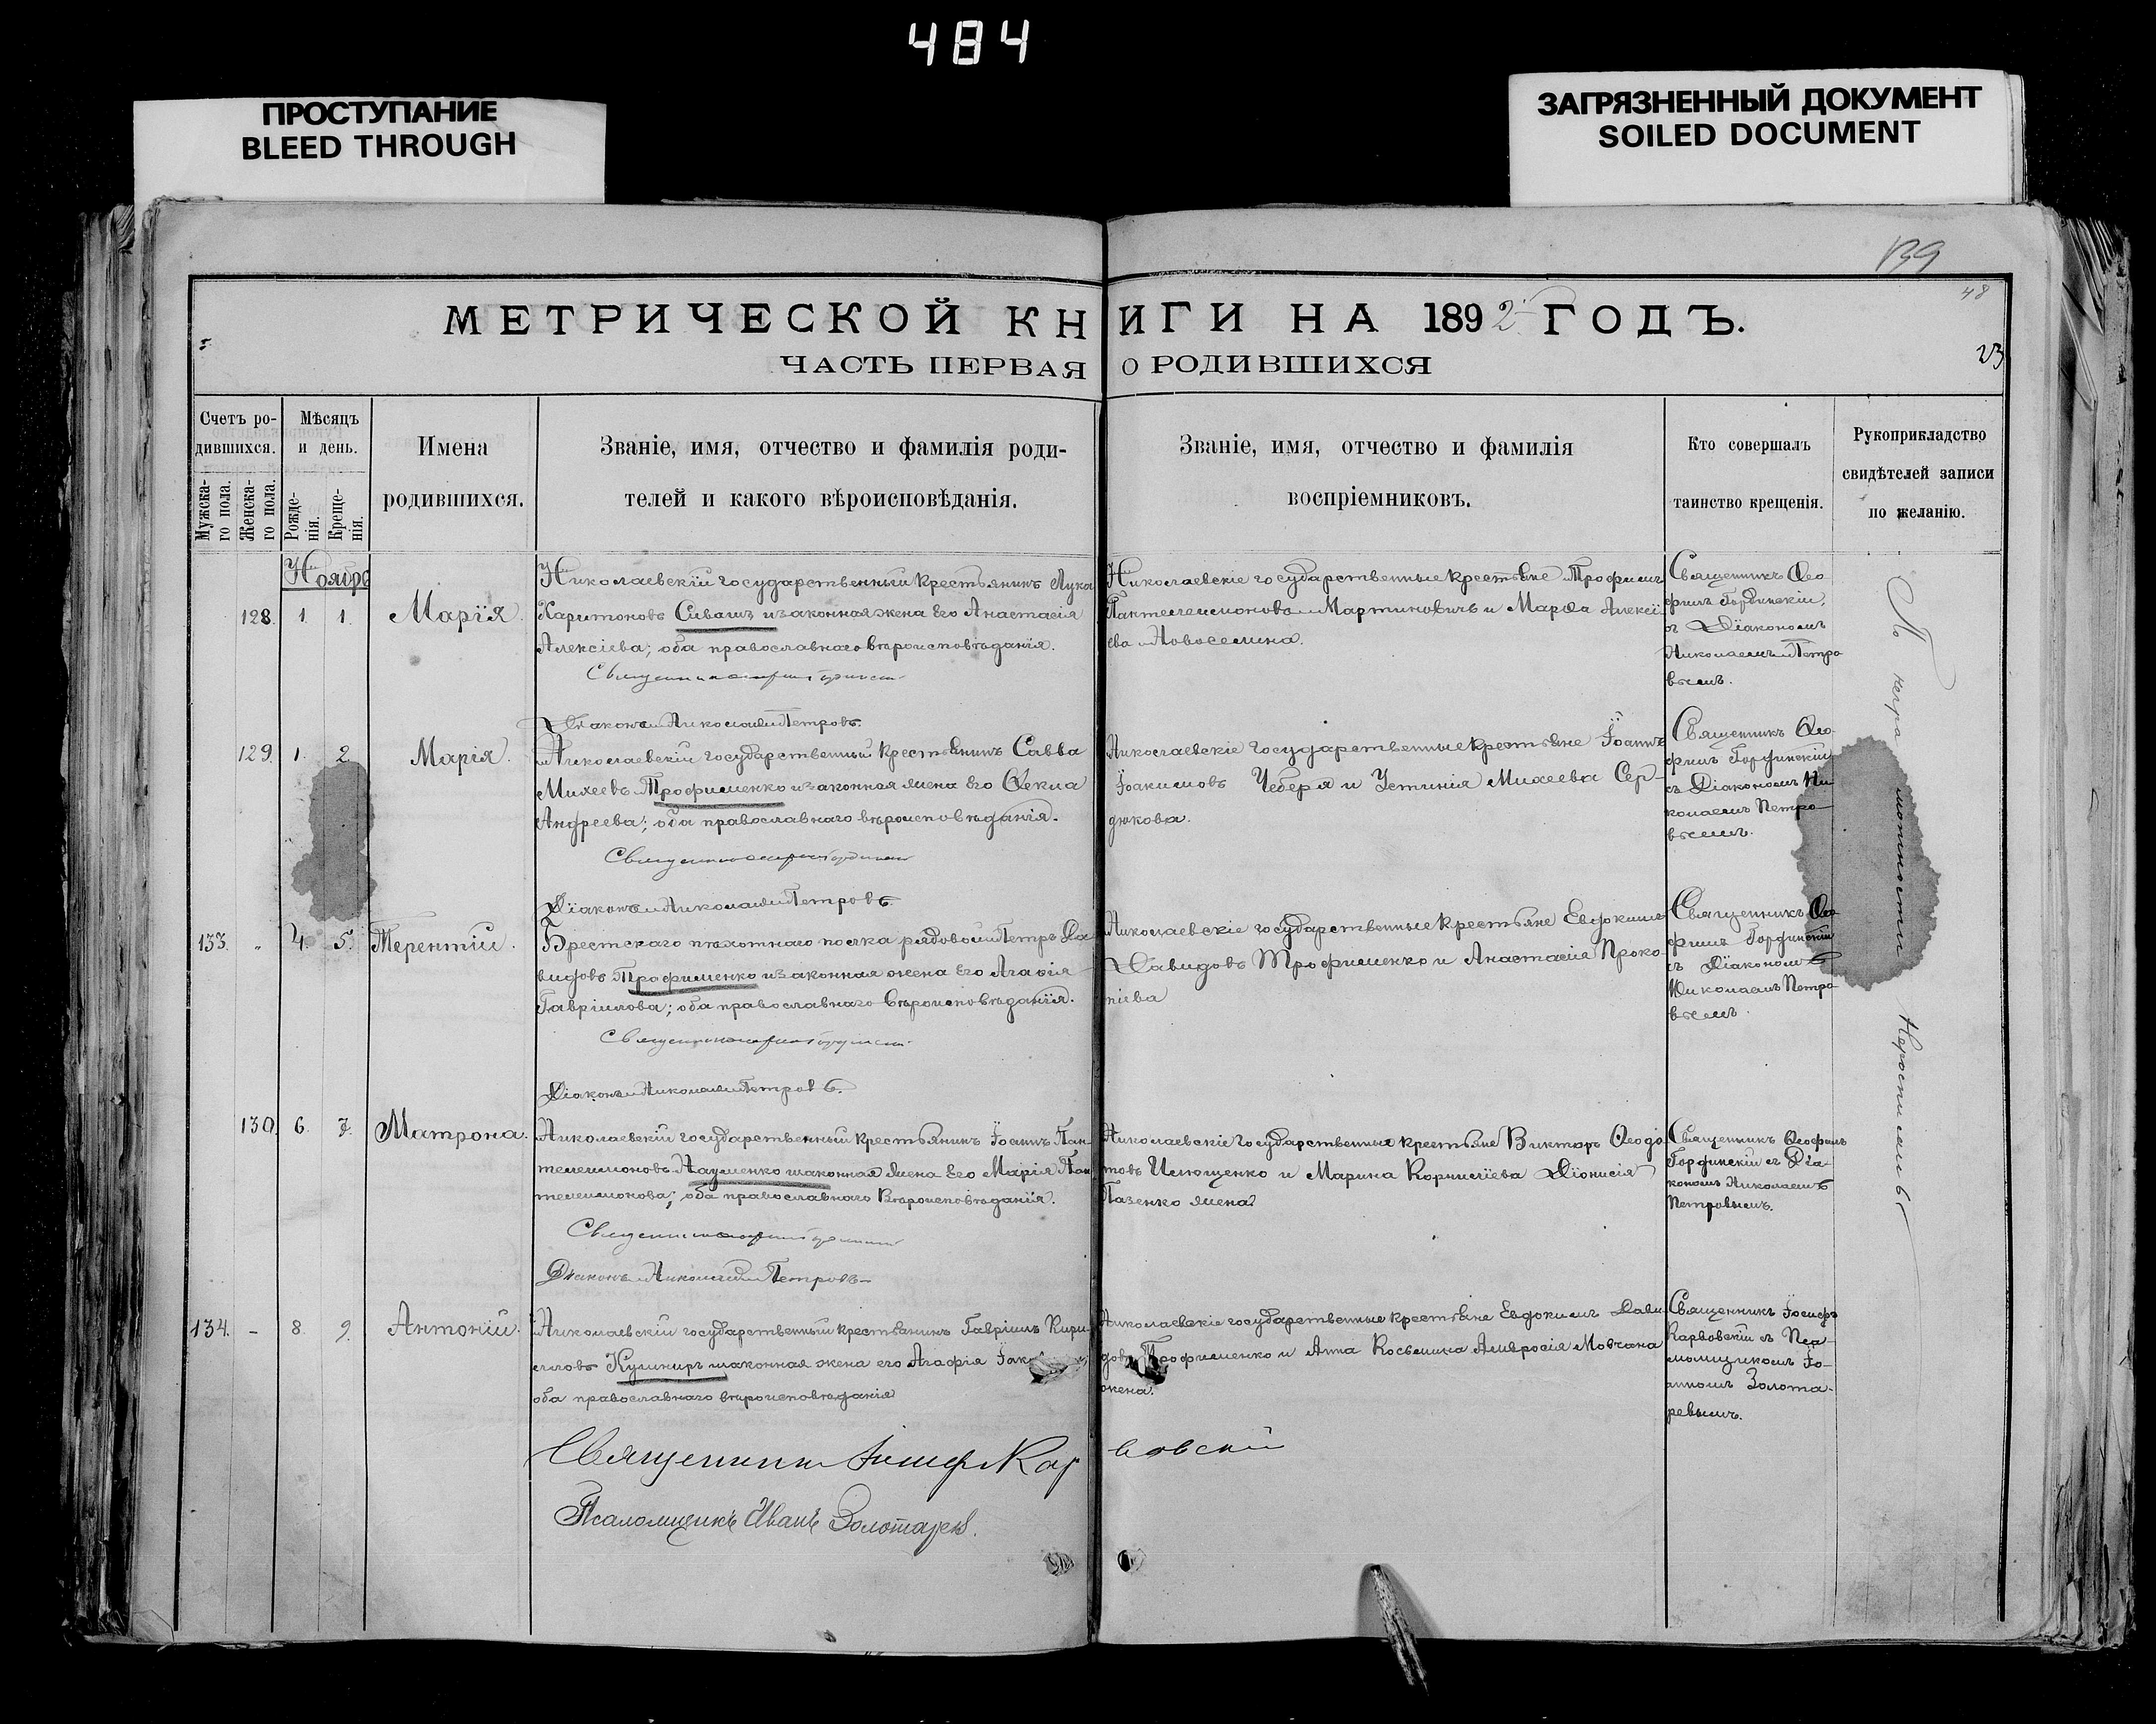 484
ПРОСТУПАНИЕ
BLEED THROUGH
ЗАГРЯЗНЕННЫЙ ДОКУМЕНТ
SOILED DOCUMENT
139
48
МЕТРИЧЕСКОЙ КНИГИ НА 1892 ГОДЪ.
23
ЧАСТЬ ПЕРВАЯ О РОДИВШИХСЯ
Счетъ ро-
дившихся.
Мужска-
го пола.
Женска-
го пола.
Мѣсяцъ
и день.
Рожде-
нія.
Креще-
нія.
Имена
родившихся.
Званіе, имя, отчество и фамилія роди-
телей и какого вѣроисповѣданія.
Званіе, имя, отчество и фамилія
воспріемниковъ.
Кто совершалъ
таинство крещенія.
Рукоприкладство
свидѣтелей записи
по желанію.
Ноябрь
128. 1. 1. Марія.
Николаевскій государственный крестьянинъ Лука
Харитоновъ Сивашъ и законная жена его Анастасія
Алексіева; оба православнаго вѣроисповѣданія.
Священникъ
Діаконъ Николай Петровъ.
Николаевскіе государственные крестьяне Трофимъ
Пантелеимоновъ Мартиновичъ и Марѳа Алексі-
ева Новоселина.
Священникъ Ѳео
филъ Гординскій,
съ Діакономъ
Николаемъ Петро
вымъ.
129. 1. 2. Марія.
Николаевскій государственный крестьянинъ Савва
Михеевъ Трофименко и законная жена его Ѳекла
Андреева; оба православнаго вѣроисповѣданія.
Священникъ
Діаконъ Николай Петровъ.
Николаевскіе государственные крестьяне Іоаннъ
Іоакимовъ Чеберя и Устинія Михеева Сер-
дюкова.
Священникъ Ѳео-
филъ Гординскій
съ Діакономъ Ни-
колаемъ Петро-
вымъ.
133. „ 4. 5. Терентій.
Брестскаго пѣхотнаго полка рядовой Петръ Да
видовъ Трофименко и законная жена его Агаѳія
Гавріилова; оба православнаго вѣроисповѣданія.
Священникъ
Діаконъ Николай Петровъ.
Николаевскіе государственные крестьяне Евдокимъ
Давидовъ Трофименко и Анастасія Проко-
піева
Священникъ Ѳео
филъ Гординскій
съ Діакономъ
Николаемъ Петро
вымъ.
130. 6. 7. Матрона.
Николаевскій государственный крестьянинъ Іоаннъ Пан
телеимоновъ Науменко и законная жена его Марія Пан
телеимонова; оба православнаго вѣроисповѣданія.
Священникъ
Діаконъ Николай Петровъ
Николаевскіе государственные крестьяне Викторъ Ѳеодо
товъ Ильющенко и Марина Корниліева Діонисія
Пазенко жена.
Священникъ Ѳеофилъ
Гординскій съ Діа-
кономъ Николаемъ
Петровымъ.
134. - 8. 9. Антоній.
Николаевскій государственный крестьянинъ Гавріилъ Кири-
лловъ Кушниръ и законная жена его Агафія
оба православнаго вѣроисповѣданія
Николаевскіе государственные крестьяне Евдокимъ Дави-
довъ Трофименко и Анна Косьмина Амвросія Мовчана
жена.
Священникъ Іосифъ
Карвовскій съ Пса-
ломщикомъ Іо-
анномъ Золота-
ревымъ.
Священникъ Іосифъ Карвовскій
Псаломщикъ Иванъ Золотаревъ.
По неграмотности